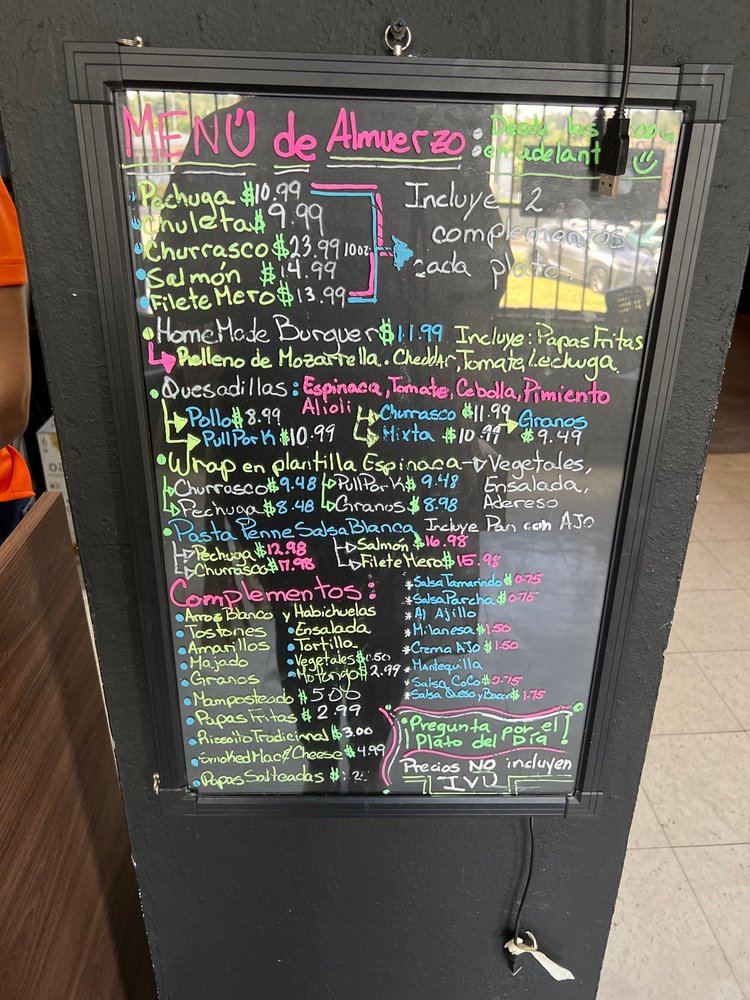 MENÚ de Almuerzo
Desde las
en adelant
Pechuga $10.99
Chuleta $9.99
Churrasco $23.99 10oz
Salmón $14.99
Filete Mero $13.99
Incluye 2
complementos
cada plato.
HomeMade Burguer $11.99 Incluye: Papas Fritas
Relleno de Mozarrella. Cheddar, Tomate, Lechuga.
Quesadillas: Espinaca, Tomate, Cebolla, Pimiento
Alioli
Pollo $8.99
Pull Pork $10.99
Churrasco $11.99
Mixta $10.99
Granos
$9.49
Wrap en plantilla Espinaca → Vegetales,
Ensalada,
Adereso
Churrasco $9.48
Pechuga $8.48
Pull Pork $9.48
Granos $8.98
Pasta Penne Salsa Blanca Incluye Pan con AJO
Pechuga $12.98
Churrasco $17.98
Salmon $16.98
Filete Mero $15.98
Complementos:
Arroz Blanco y Habichuelas
Tostones
Amarillos
Majado
Granos
Mamposteado $5.00
Papas Fritas $2.99
Rissoito Tradicional $3.00
Smoked Mac & Cheese $4.99
Papas Salteadas
Ensalada
Tortilla
Vegetales $1.50
Mofongo $2.99
* Salsa Tamarindo $0.75
* Salsa Parcha $0.75
* Al Ajillo
* Milanesa $1.50
* Crema AJO $1.50
* Mantequilla
* Salsa Coco $0.75
* Salsa Queso y Bacon $1.75
¡Pregunta por el
Plato del Día!
Precios NO incluyen
IVU